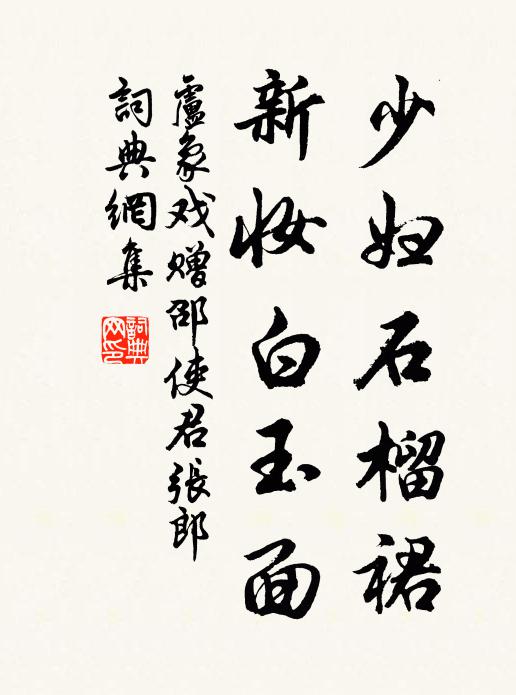 少妇石榴裙
新妆白玉面
盧象戏赠邵使君張郎
詞典網集
詞典网印